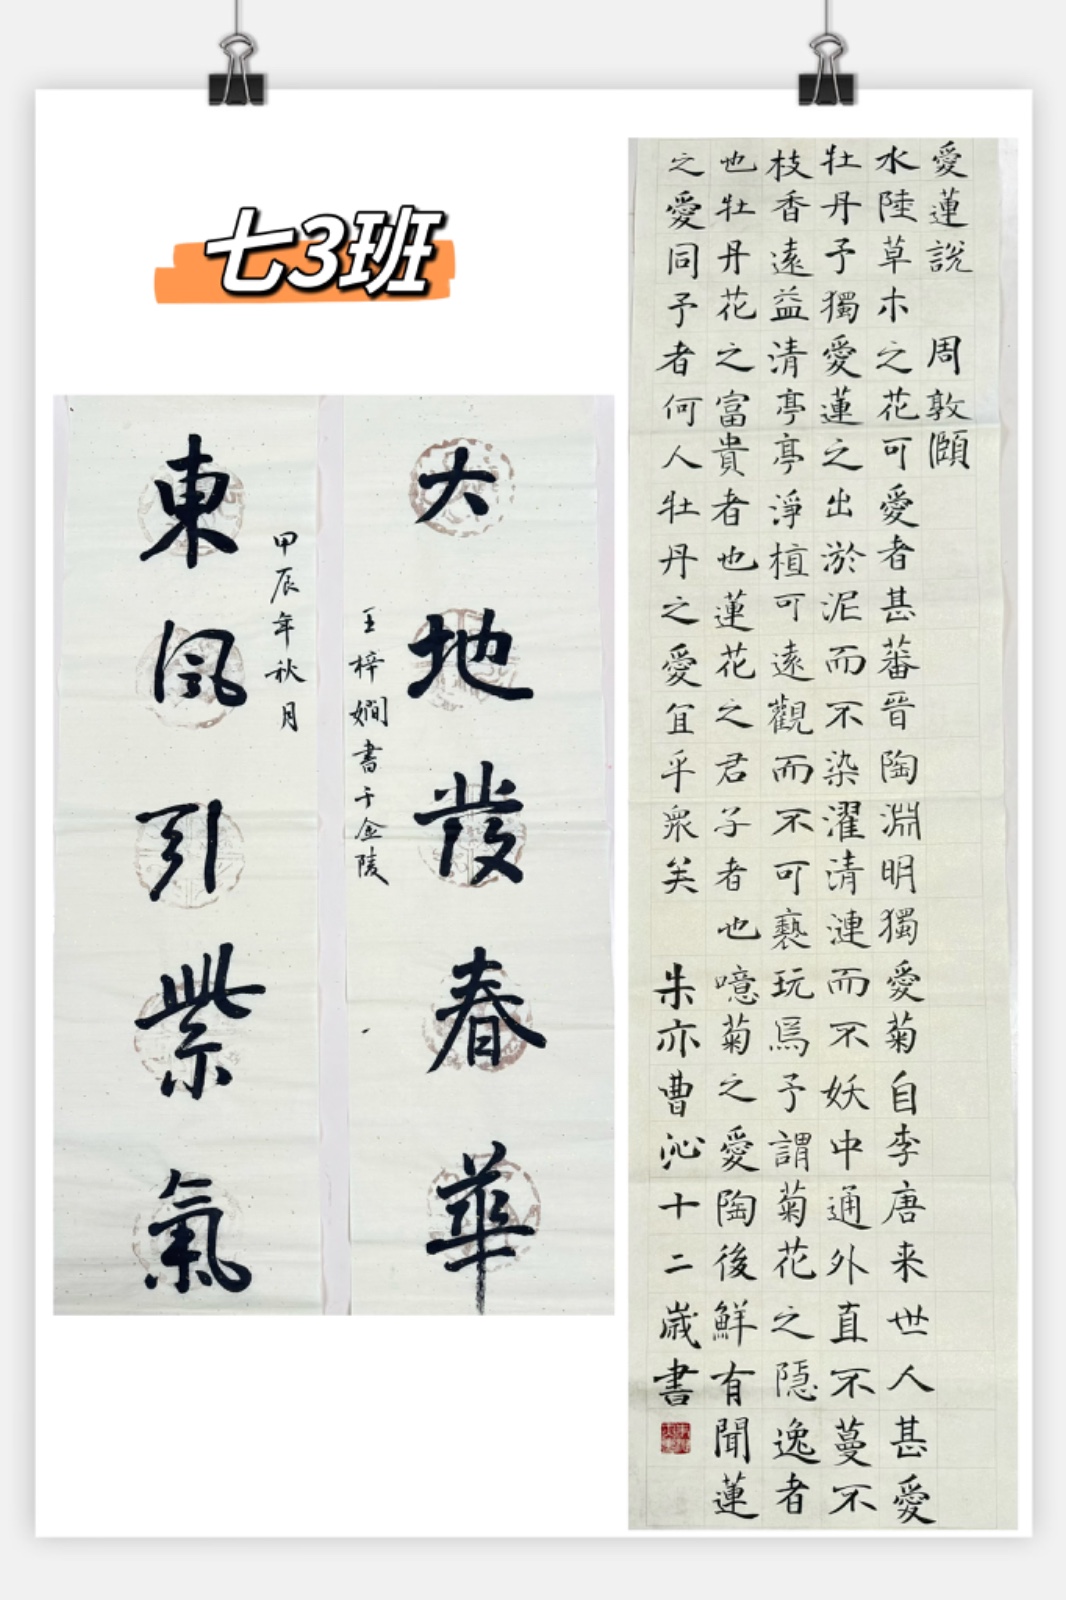 七3班
大地發春華
王梓嫺書于金陵
甲辰年秋月
東風引紫氣
愛蓮說 周敦頤
水陸草木之花可愛者甚蕃晉陶淵明獨愛菊自李唐来世人甚愛
牡丹予獨愛蓮之出淤泥而不染濯清漣而不妖中通外直不蔓不
枝香遠益清亭亭淨植可遠觀而不可褻玩焉予謂菊花之隱逸者
也牡丹花之富貴者也蓮花之君子者也噫菊之愛陶後鮮有聞蓮
之愛同予者何人牡丹之愛宜乎衆矣 朱亦曹沁十二歲書